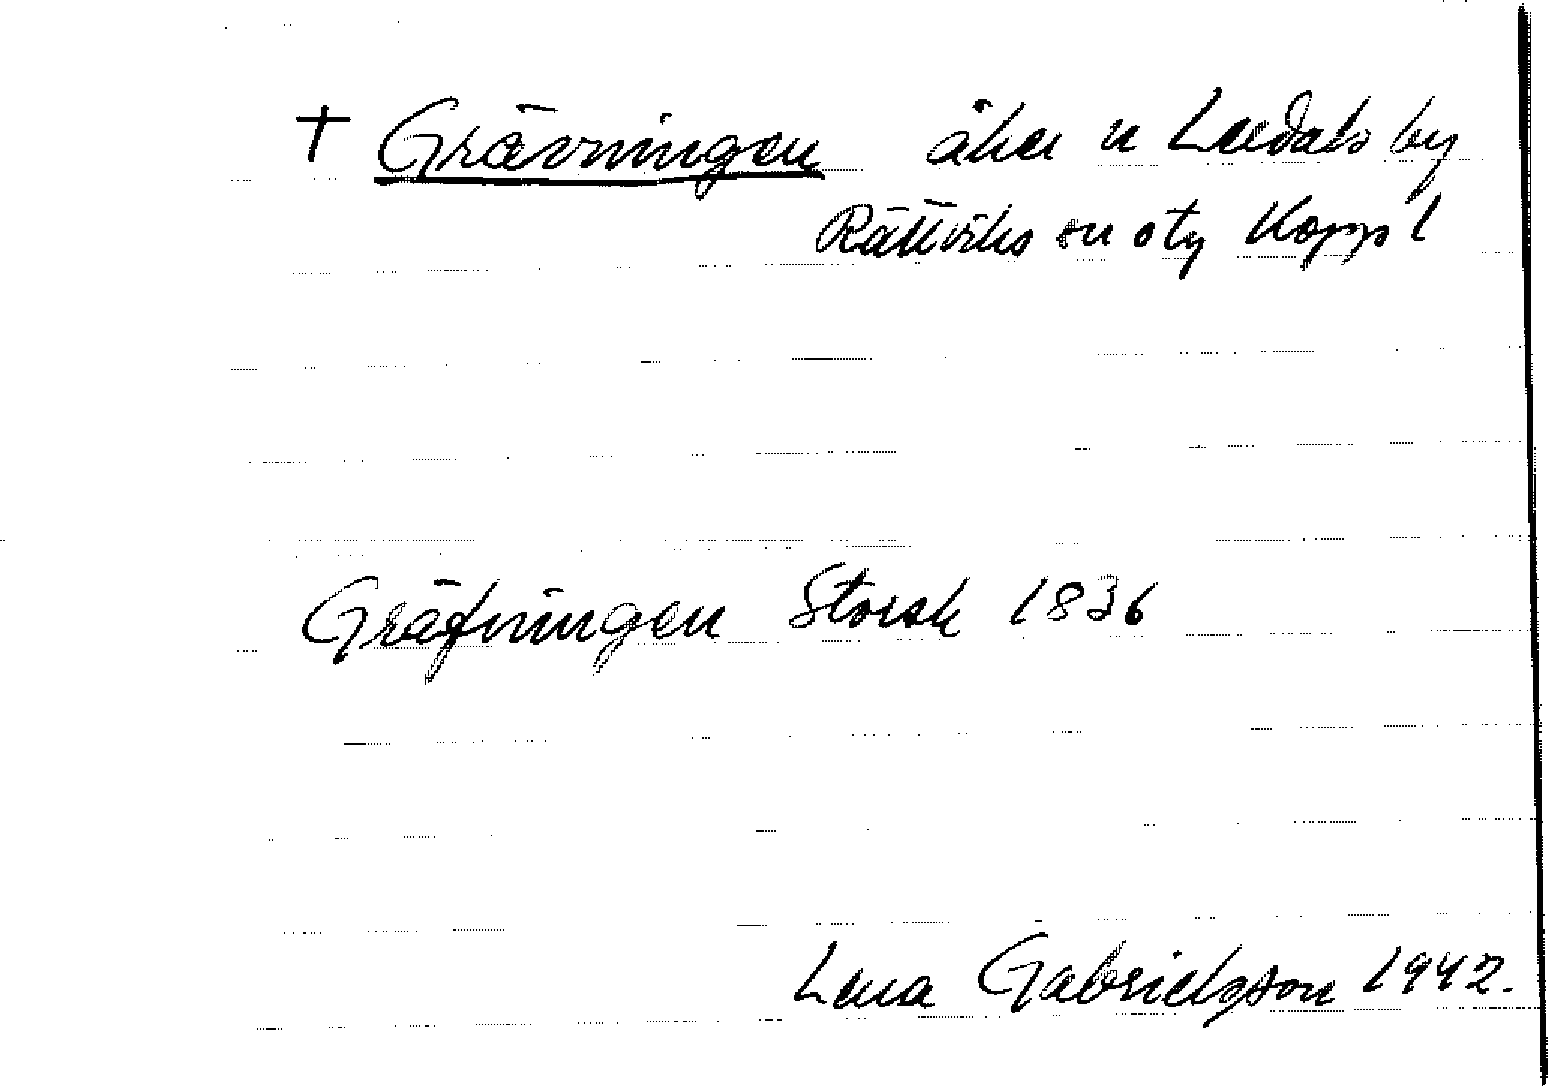 † Grävningen åker u Lerdals by
Rättviks sn o tg Koppl
Gräfningen Storsk 1836
Lena Gabrielsson 1942.